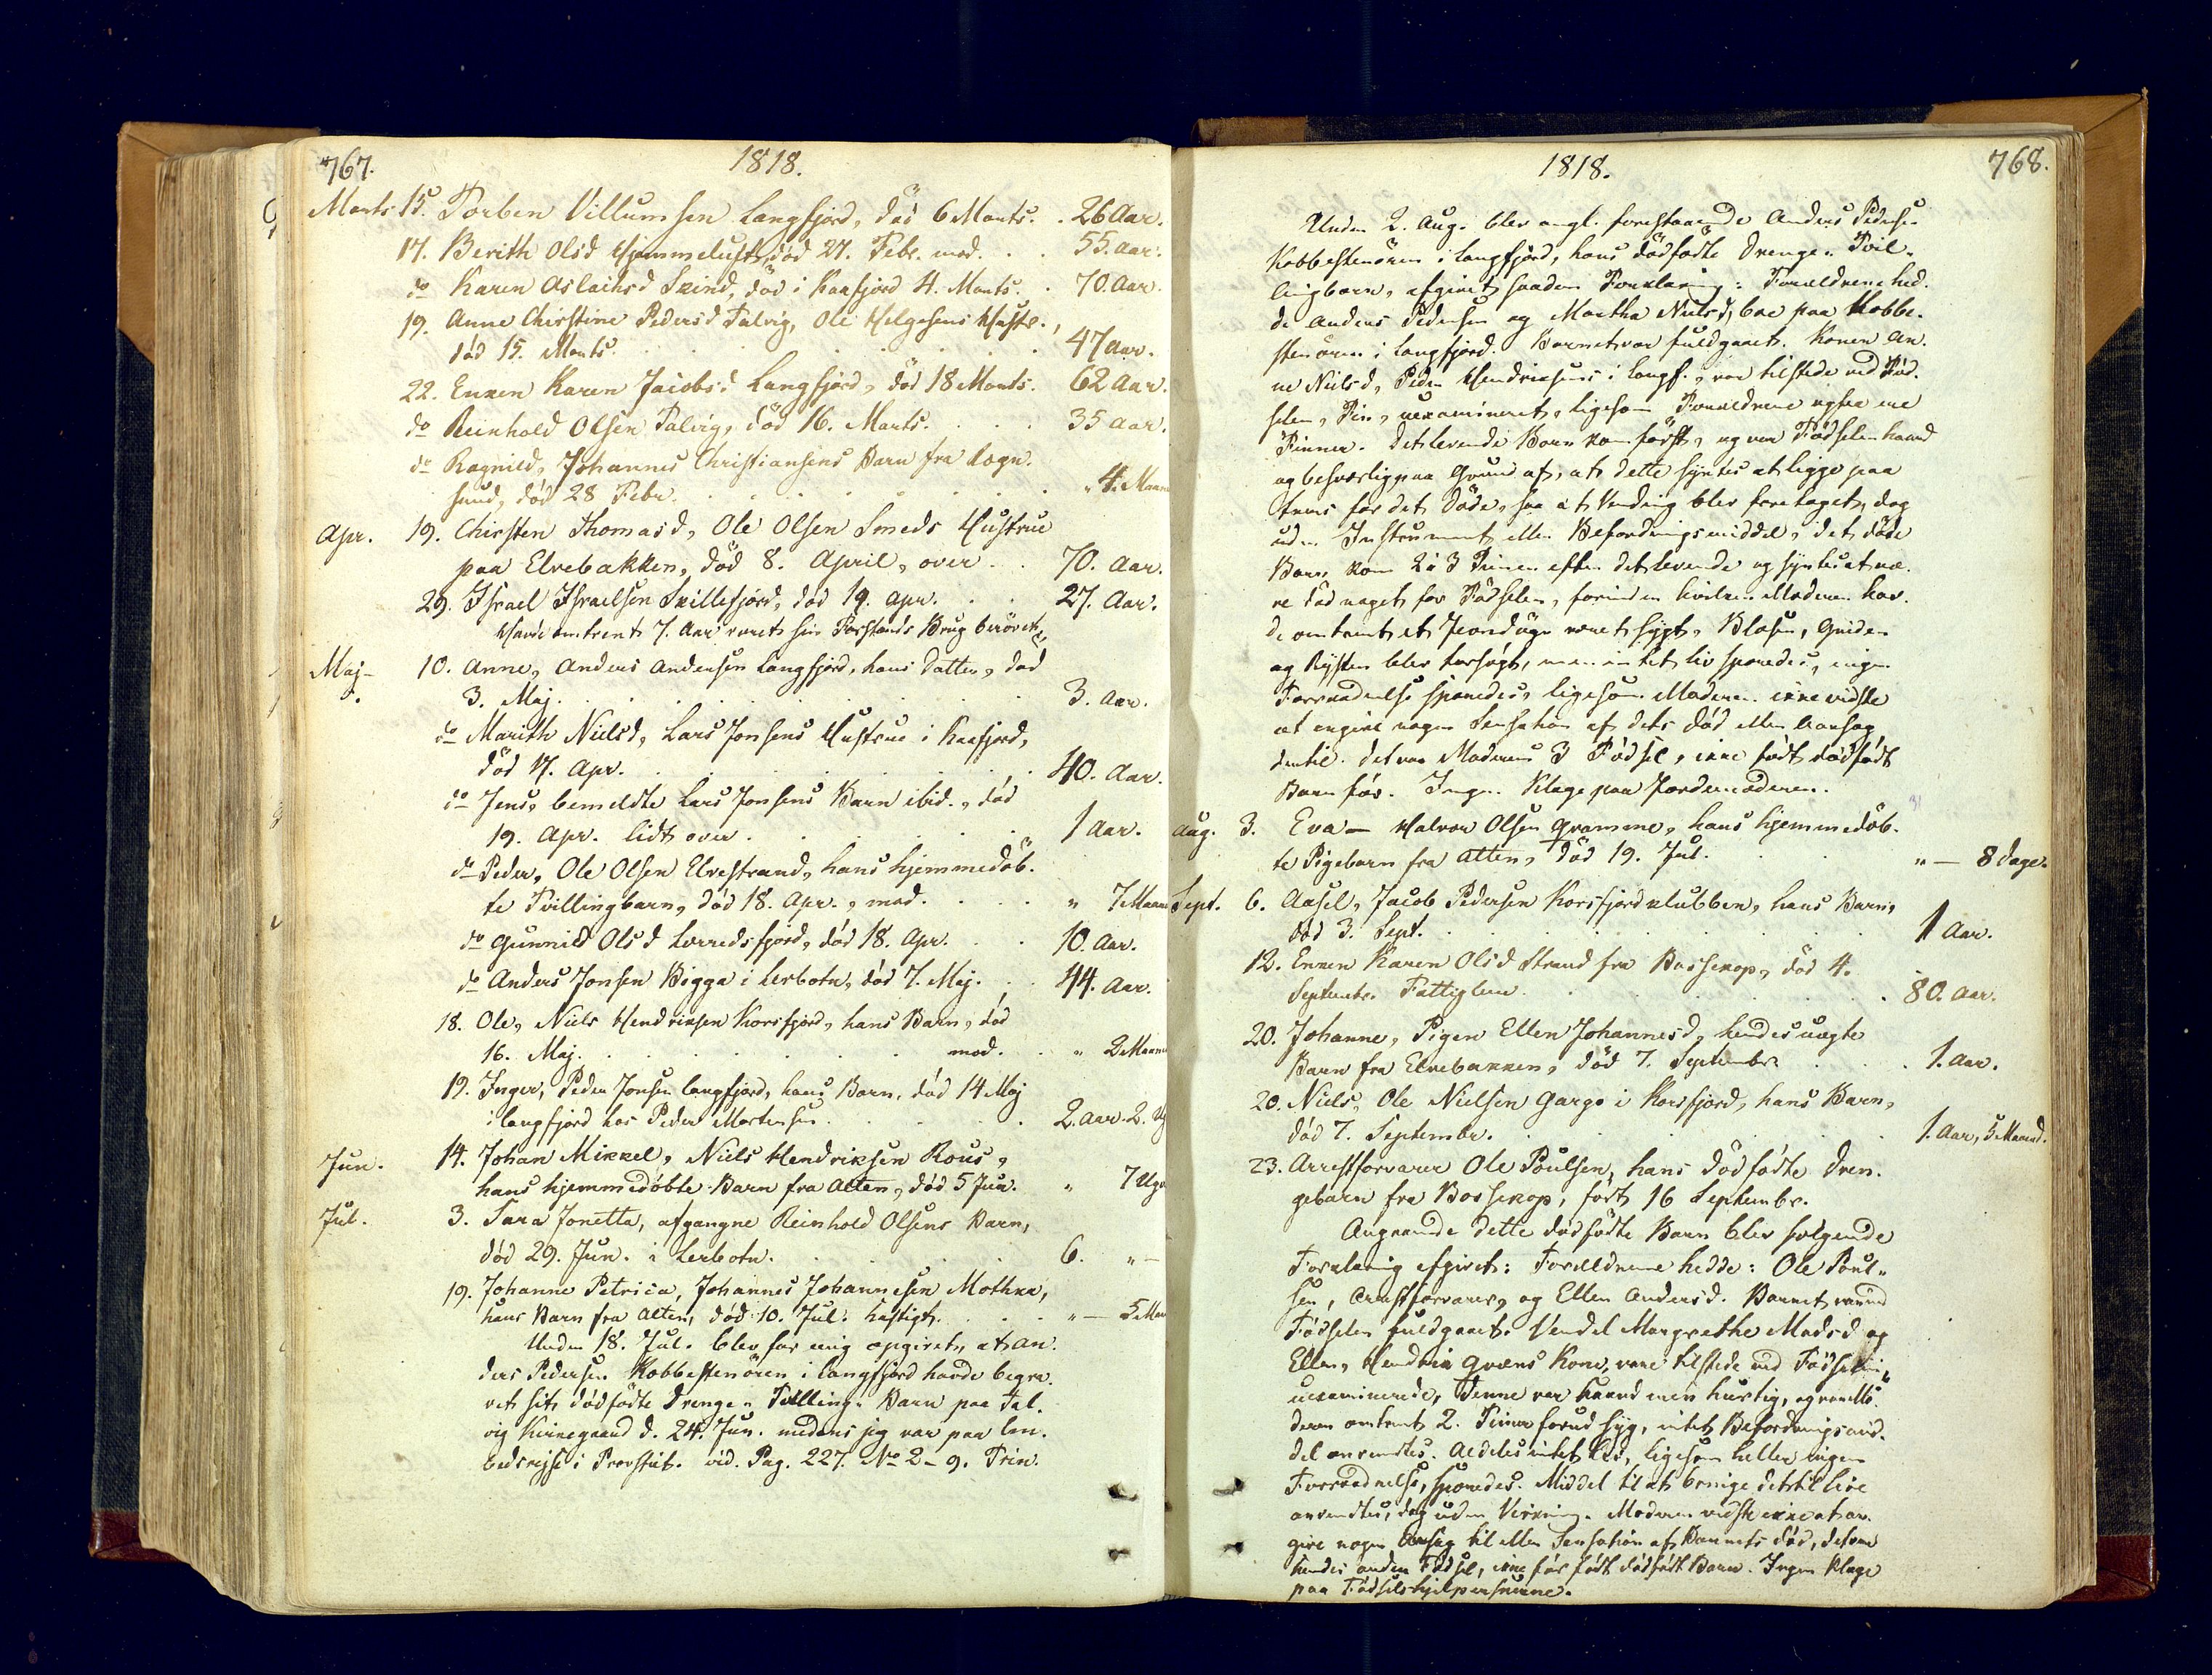 767.
1818.
Marts 15. Torben Villumsen Langfjord, død 6 Marts. . 26 Aar.
17. Berith Olsd Hjemmeluft, død 27. Febr. mod. . . 55. Aar.
do Karen Aslaksd Skind, død i Kaafjord 4. Marts. . 70. Aar.
19. Anne Christine Pedersd Talvig, Ole Helgesens Hustr.,
død 15. Marts. . . . . . . 47 Aar.
22. Enken Karen Jacobsd Langfjord, död 18 Marts. 62 Aar.
do Reinhold Olsen Talvig, död 16. Marts. . . . 35 Aar.
do Ragnild, Johannes Christiansens Barn fra Rogn-
sund, död 28 Febr. . . . . . . . " 4. Maan
Apr. 19. Chirsten Thomasd, Ole Olsen Smeds Hustrue
paa Elvebakken, död 8. April, over . . 70. Aar.
29. Israel Israelsen Skillefjord, död 19. Apr. . . . 27. Aar.
Havde omtrent 7. Aar været sin Forstands Brug berövet.
Maj. 10. Anne, Anders Andersen Langfjord, hans Datter, död
3. Maj. . . . . . . . 3. Aar.
do Marith Nielsd, Lars Jonsens Hustrue i Kaafjord,
död 17. Apr. . . . . . . . 40. Aar.
do Jens, bemeldte Lars Jonsens Barn ibid., död
19. Apr. lidt over . . . . . . 1 Aar.
do Peder, Ole Olsen Elvestrand, hans hjemmedöb-
te Tvillingbarn, död 18. Apr., mod. . . . . " 7 Maan
do Gunnild Olsd Lerredsfjord, död 18. Apr. . . 10. Aar.
do Anders Jonsen Bigga i Lerbotn, död 7. Maj. . . 44. Aar.
18. Ole, Niels Hendriksen Korsfjord, hans Barn, död
16. Maj. . . . . . . mod. . " 2 Maan
19. Inger, Peder Jonsen Langfjord, hans Barn, död 14 Maj
i Langfjord hos Peder Mortensen. . . . . . 2. Aar. 2. Ug
Jun. 14. Johan Mikkel, Niels Hendriksen Rous,
hans hjemmedöbte Barn fra Alten, död 5 Jun. . " 7 Uge
Jul. 3. Sara Jonetta, afgangne Reinhold Olsens Barn,
död 29. Jun. i Lerbotn. . . . . . 6. " —
19. Johanne Petrica, Johannes Johannesen Mothka,
hans Barn fra Alten, död 10. Jul. hastigt. . . . . " — 5 Maa
Under 18. Jul. blev for mig opgivet, at An-
ders Pedersen Kobbestenören i Langfjord havde begra-
vet sit dödfödte Drenge-Tvilling-Barn paa Tal-
vig Kirkegaard d. 24. Jun. medens jeg var paa Em-
bedsrejse i Provstiet. vid. Pag. 227. No 2 – 9. Trin.
1818.
768.
Under 2. Aug. blev angl. forestaaende Anders Pedersen
Kobbestenören i Langfjord, hans dödfödte Drenge-Tvil-
lingbarn, afgivet saadan Forklaring: Forældrene hed-
de Anders Pedersen og Martha Nielsd, boe paa Kobbe-
stenören i Langfjord. Barnet var fuldgaaet. Konen An-
ne Nielsd, Peder Hendriksens i Langf., var tilstede ved Föd-
selen, Fin, uexamineret, ligesom Forældrene ogsaa ere
Finner. Det levende Barn kom först, og var Födselen haard
og besværlig paa Grund af, at dette syntes at ligge paa
tvers for det döde, saa at Vending blev foretaget, dog
uden Instrument eller Befordringsmiddel, det döde
Barn kom 2 à 3 Timer efter det levende og syntes at væ-
re död noget för Födselen, forinden hvilken Moderen hav-
de omtrent et Jevndögn været syg. Blæsen, Gniden
og Rysten blev forsögt, men intet Liv sporedes, ingen
Forraadnelse sporedes, ligesom Moderen ikke vidste
at angive nogen Sensation af dets död eller Aarsag
dertil. Det var Moderens 3 Födsel, ikke födt dödfödt
Barn för. Ingen Klage paa Jordemoderen.
Aug. 3. Eva — Halvor Olsen Gramme, hans hjemmedöb-
te Pigebarn fra Alten, död 19. Jul. . . . " — 8 Dage.
Sept. 6. Aasel, Jacob Pedersen Korsfjordklubben, hans Barn,
död 3. Sept. . . . . . . . 1 Aar.
12. Enken Karen Olsd Strand fra Bossekop, död 4.
Septembr. Fattiglem . . . . . . . 80. Aar.
20. Johanne, Pigen Ellen Johannesd, hendes uægte
Barn fra Elvebakken, död 7. Septembr. . . . 1. Aar.
20. Niels, Ole Nielsen Gargo i Korsfjord, hans Barn,
död 7. Septembr. . . . . . . 1. Aar, 5 Maaned.
23. Arrestforvarer Ole Poulsen, hans dödfödte Dren-
gebarn fra Bossekop, födt 16 Septembr.
Angaaende dette dödfödte Barn blev fölgende
Forklaring afgivet: Forældrene hedde: Ole Poul-
sen, Arrestforvarer, og Ellen Andersd. Barnet var ved
Födselen fuldgaaet. Vendel Margrethe Madsd og
Ellen, Hendrik Qvæns Kone, vare tilstede ved Födselen,
uexaminerede, denne var haard men hurtig, og var Mo-
deren omtrent 2. Timer forud syg, intet Befordringsmid-
del anvendtes. Aldeles intet Liv, ligesom heller ingen
Forraadnelse, sporedes. Middel til at bringe det til Live
anvendtes, dog uden Virkning. Moderen vidste ikke at an-
give nogen Aarsag til eller Sensation af Barnets död, det var
hendes anden Födsel, ikke för födt dödfödt Barn. Ingen Klage
paa Födselshjelperskerne.